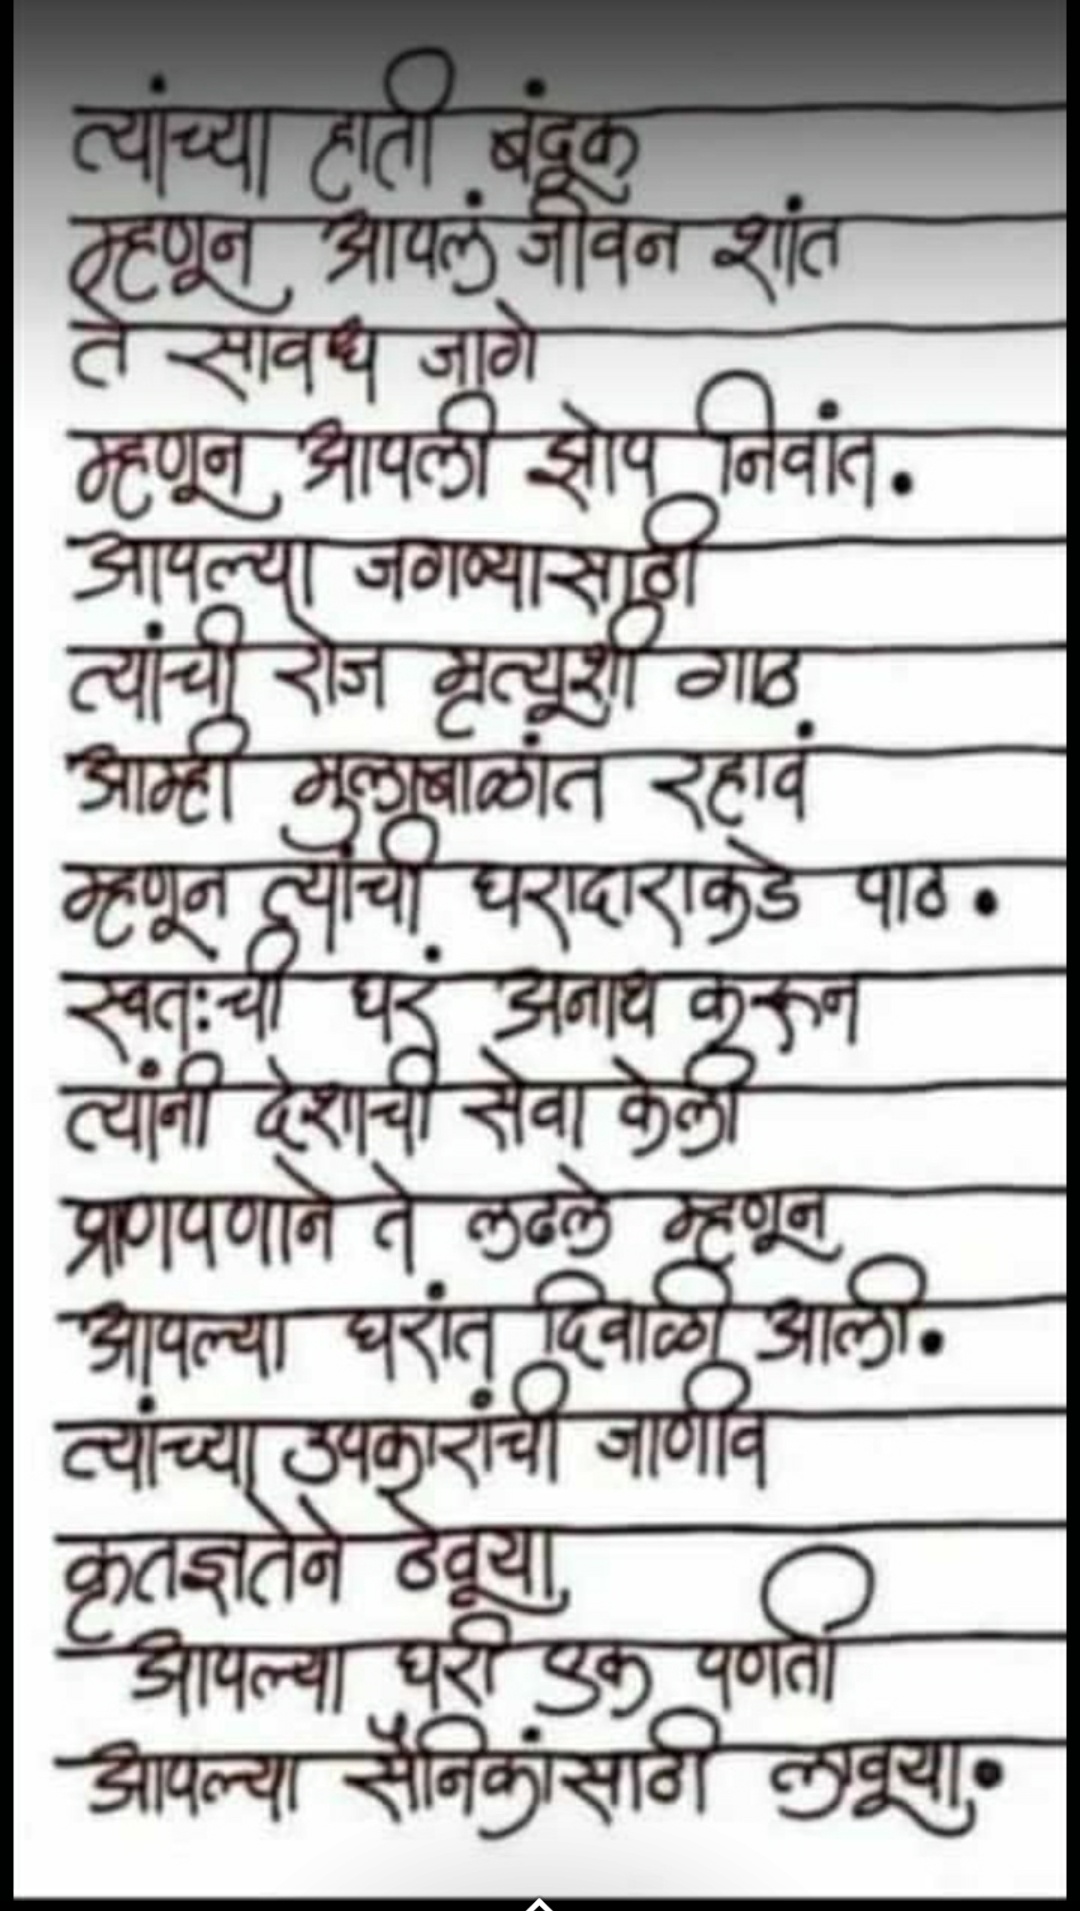 त्यांच्या हाती बंदूक
म्हणून आपलं जीवन शांत
ते सावध जागे
म्हणून आपली झोप निवांत.
आपल्या जगण्यासाठी
त्यांची रोज मृत्यूशी गाठ
आम्ही मुलाबाळांत रहावं
म्हणून त्यांची घरादाराकडे पाठ.
स्वतःची घरं अनाथ करून
त्यांनी देशाची सेवा केली
प्राणपणाने ते लढले म्हणून
आपल्या घरांत दिवाळी आली.
त्यांच्या उपकारांची जाणीव
कृतज्ञतेने ठेवूया
आपल्या घरी एक पणती
आपल्या सैनिकांसाठी लावूया.